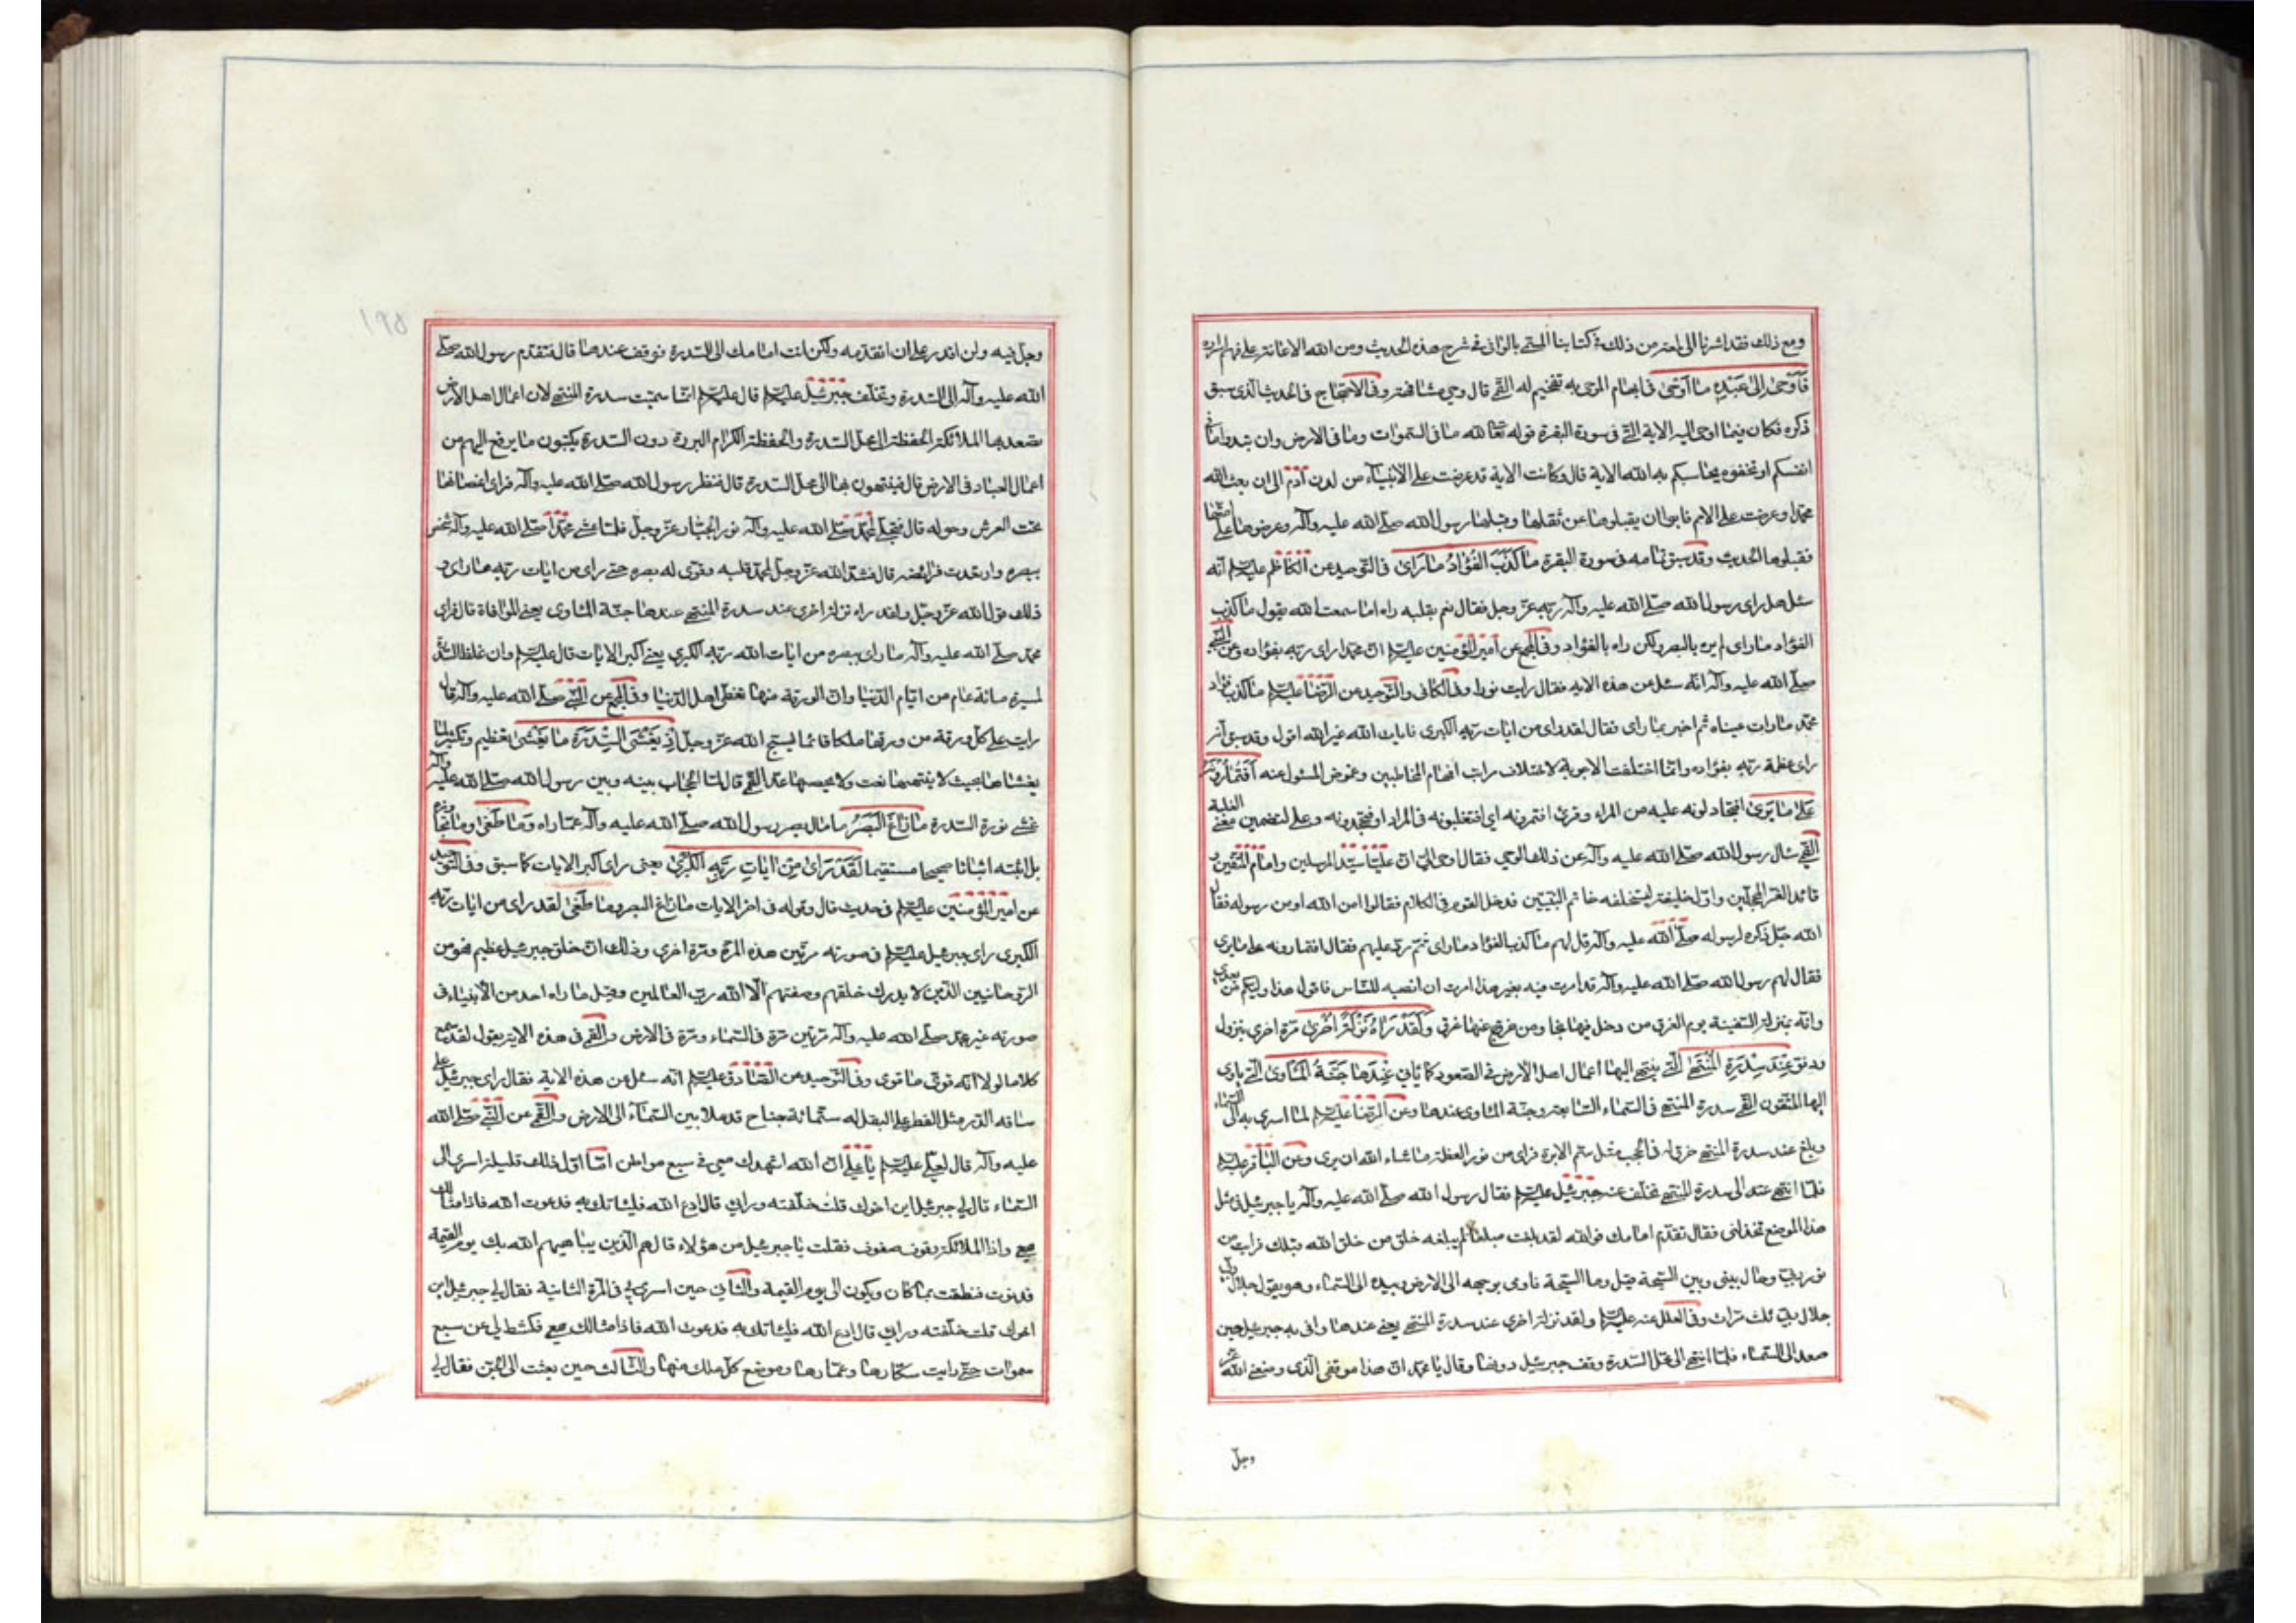 ومع ذلك فقد اشرنا الى احتر من ذلك في كتابنا المسمى بالوافي في شرح هذه الحديث ومن الله الاعانة على فهم اسراره
فَاَوْحىٰ اِلىٰ عَبْدِهِ مٰا اَوْحىٰ في ابهام الموحى به تفخيم له القمي قال وحي مشافهة وفي الاحتجاج في الحديث الذي سبق
ذكره فكان فيما اوحى اليه الاية التي في سورة البقرة قوله تعالى لله ما في السموات وما في الارض وان تبدوا ما في
انفسكم او تخفوه يحاسبكم به الله الاية قال وكانت الاية قد عرضت على الانبياء من لدن آدم الى ان بعث الله
محمدا وعرضت على الامم فابوا ان يقبلوها من ثقلها وقبلها رسول الله صلى الله عليه وآله وعرضها على امته
فقبلوها الحديث وقد سبق تمامه في سورة البقرة مٰا كَذَبَ الْفُؤٰادُ مٰا رَاىٰ في التوحيد عن الكاظم عليه السلام انه
سئل هل راى رسول الله صلى الله عليه وآله ربه عز وجل فقال نعم بقلبه راه اما سمعت الله يقول ما كذب
الفؤاد ما راى لم يره بالبصر ولكن راه بالفؤاد وفي المجمع عن امير المؤمنين عليه السلام ان محمدا راى ربه بفؤاده وعن النبي
صلى الله عليه وآله انه سئل عن هذه الاية فقال رايت نورا وفي الكافي والتوحيد عن الرضا عليه السلام ما كذب فؤاد
محمد ما رات عيناه ثم اخبر بما راى فقال لقد راى من ايات ربه الكبرى فايات الله غير الله اقول وقد سبق انه
راى عظمة ربه بفؤاده وانما اختلفت الاجوبة لاختلاف مراتب افهام المخاطبين وغموض المسئول عنه اَفَتُمٰارُونَهُ
عَلىٰ مٰا يَرىٰ افتجادلونه عليه من المراء وقرئ افتمرونه اي افتغلبونه في المراد او فتجحدونه وعلى لتضمين معنى الغلبة
القمي سال رسول الله صلى الله عليه وآله عن ذلك الوحي فقال اوحى الي ان عليا سيد المرسلين وامام المتقين و
قائد الغر المحجلين واول خليفة يستخلفه خاتم النبيين فدخل القوم في الكلام فقالوا امن الله او من رسوله فقال
الله جل ذكره لرسوله صلى الله عليه وآله قل لهم ما كذب الفؤاد ما راى ثم رد عليهم فقال افتمارونه على ما يرى
فقال لهم رسول الله صلى الله عليه وآله قد امرت فيه بغير هذا امرت ان انصبه للناس فاقول هذا وليكم من بعدي
وانه بمنزلة السفينة يوم الغرق من دخل فيها نجا ومن خرج عنها غرق وَلَقَدْ رَاٰهُ نَزْلَةً اُخْرىٰ مرة اخرى بنزول
ودنو عِنْدَ سِدْرَةِ الْمُنْتَهىٰ التي ينتهي اليها اعمال اهل الارض في الصعود كما ياتي عِنْدَهٰا جَنَّةُ الْمَاْوىٰ التي ياوى
اليها المتقون القمي سدرة المنتهى في السماء السابعة وجنة الماوى عندها وعن الرضا عليه السلام لما اسري به الى السماء
وبلغ عند سدرة المنتهى خرق له في الحجب مثل سم الابرة فراى من نور العظمة ما شاء الله ان يرى وعن الباقر عليه السلام
فلما انتهى به الى سدرة المنتهى تخلف عنه جبرئيل عليه السلام فقال رسول الله صلى الله عليه وآله يا جبرئيل في مثل
هذا الموضع تخذلني فقال تقدم امامك فوالله لقد بلغت مبلغا لم يبلغه خلق من خلق الله قبلك فرايت من
نور ربي وحال بيني وبين السبحة قيل وما السبحة فاومى بوجهه الى الارض وبيده الى السماء وهو يقول جلال ربي
جلال ربي ثلث مرات وفي العلل عنه عليه السلام ولقد نزلة اخرى عند سدرة المنتهى يعني عندها وافى به جبرئيل حين
صعد الى السماء فلما انتهى الى محل السدرة وقف جبرئيل دونها وقال يا محمد ان هذا موقفي الذي وضعني الله عز
وجل
١٩٥
وجل فيه ولن اقدر على ان اتقدمه ولكن انت امامك الى السدرة فوقف عندها قال فتقدم رسول الله صلى
الله عليه وآله الى السدرة وتخلف جبرئيل عليه السلام قال عليه السلام انما سميت سدرة المنتهى لان اعمال اهل الارض
تصعد بها الملائكة الحفظة الى محل السدرة والحفظة الكرام البررة دون السدرة يكتبون ما يرفع اليهم من
اعمال العباد في الارض قال فينتهون بها الى محل السدرة قال فنظر رسول الله صلى الله عليه وآله فراى اغصانها
تحت العرش وحوله قال فتجلى لمحمد صلى الله عليه وآله نور الجبار عز وجل فلما غشي محمدا صلى الله عليه وآله شخص
ببصره وارتعدت فرائصه قال فشد الله عز وجل لمحمد قلبه وقوى له بصره حتى راى من ايات ربه ما راى و
ذلك قول الله عز وجل ولقد راه نزلة اخرى عند سدرة المنتهى عندها جنة الماوى يعني الموافاة قال فراى
محمد صلى الله عليه وآله ما راى ببصره من ايات الله ربه الكبرى يعني اكبر الايات قال عليه السلام وان غلظ السدرة
لمسيرة مائة عام من ايام الدنيا وان الورقة منها تغطي اهل الدنيا وفي المجمع عن النبي صلى الله عليه وآله قال
رايت على كل ورقة من ورقها ملكا قائما يسبح الله عز وجل اِذْ يَغْشَى السِّدْرَةَ مٰا يَغْشىٰ تعظيم وتكثير لما
يغشاها بحيث لا يكتنهها نعت ولا يحصيها عد القمي قال لما الحجاب بينه وبين رسول الله صلى الله عليه وآله
غشي نوره السدرة مٰا زٰاغَ الْبَصَرُ ما مال بصر رسول الله صلى الله عليه وآله عما راه وَمٰا طَغىٰ وما تجاوزه
بل اثبته اثباتا صحيحا مستقيما لَقَدْ رَاىٰ مِنْ اٰيٰاتِ رَبِّهِ الْكُبْرىٰ يعني راى اكبر الايات كما سبق وفي التوحيد
عن امير المؤمنين عليه السلام في حديث قال وقوله في اخر الايات ما زاغ البصر وما طغى لقد راى من ايات ربه
الكبرى راى جبرئيل عليه السلام في صورته مرتين هذه المرة ومرة اخرى وذلك ان خلق جبرئيل عظيم فهو من
الروحانيين الذين لا يدرك خلقهم وصفتهم الا الله رب العالمين وقيل ما راه احد من الانبياء في
صورته غير محمد صلى الله عليه وآله مرتين مرة في السماء ومرة في الارض والقمي في هذه الاية يقول لقد سمع
كلاما لولا انه قوي ما قوى وفي التوحيد عن الصادق عليه السلام انه سئل عن هذه الاية فقال راى جبرئيل على
ساقه الدر مثل القطر على البقل له ستمائة جناح قد ملا بين السماء الى الارض والقمي عن النبي صلى الله
عليه وآله قال لعلي عليه السلام يا علي ان الله اشهدك معي في سبع مواطن اما اول ذلك فليلة اسري الى
السماء قال لي جبرئيل اين اخوك قلت خلفته ورائي قال ادع الله فلياتك به فدعوت الله فاذا مثالك
معي واذا الملائكة وقوف صفوف فقلت يا جبرئيل من هؤلاء قال هم الذين يباهيهم الله بك يوم القيمة
فدنوت فنطقت بما كان ويكون الى يوم القيمة والثاني حين اسري بي في المرة الثانية فقال لي جبرئيل اين
اخوك قلت خلفته ورائي قال ادع الله فلياتك به فدعوت الله فاذا مثالك معي فكشط لي عن سبع
سموات حتى رايت سكانها وعمارها وموضع كل ملك منها والثالث حين بعثت الى الجن فقال لي